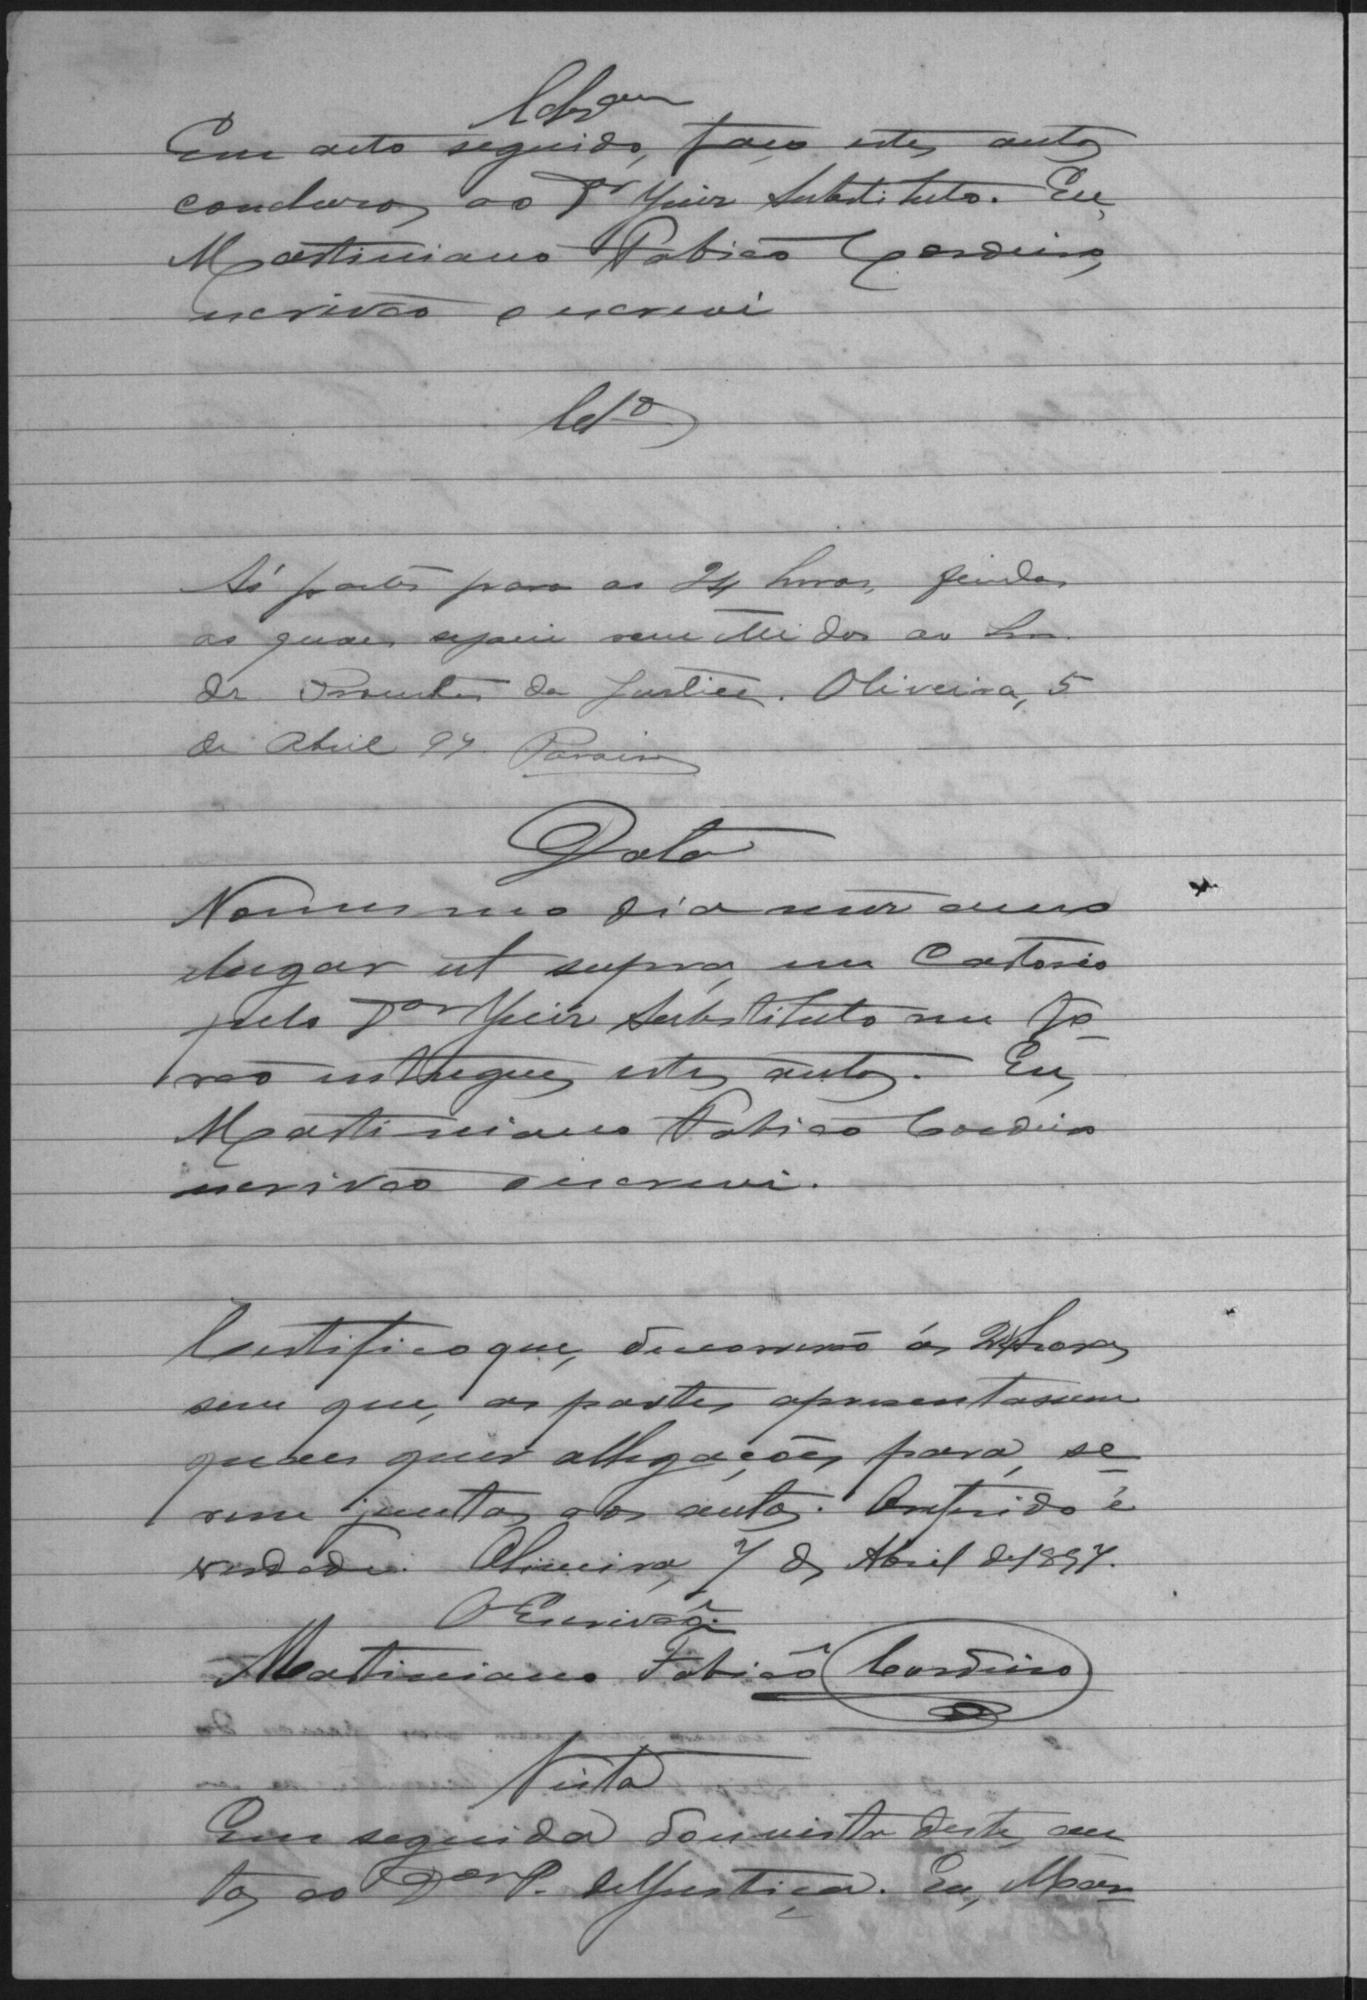 Clsam
Em acto seguido, faço estes autos
concluzos ao Dr Juiz Substituto. Eu,
Martiniano Fabião Cordeiro,
escrivão o escrevi
Clso
Ás partes para as 24 horas, findas
as quaes sejam remettidos ao Snr.
dr Promotor da Justiça. Oliveira, 5
de Abril 97.
Data
No mesmo dia mez anno
elugar ut supra, em Cartorio
pelo Dor Juiz Substituto me fo-
rão entregues estes autos. Eu,
Martiniano Fabião Cordeiro
escrivão o escrevi.
Certifico que, decorrerão ás 24 horas
sem que, as partes apresentassem
quaes quer allegações para, se-
rem juntas aos autos. Oreferido é
verdade. Oliveira, 7 de Abril de 1897.
O Escrivão.
Martiniano Fabião Cordeiro
Vista
Em seguida dou vista destes au
tos ao Dor P. deJustiça. Eu, Mar-